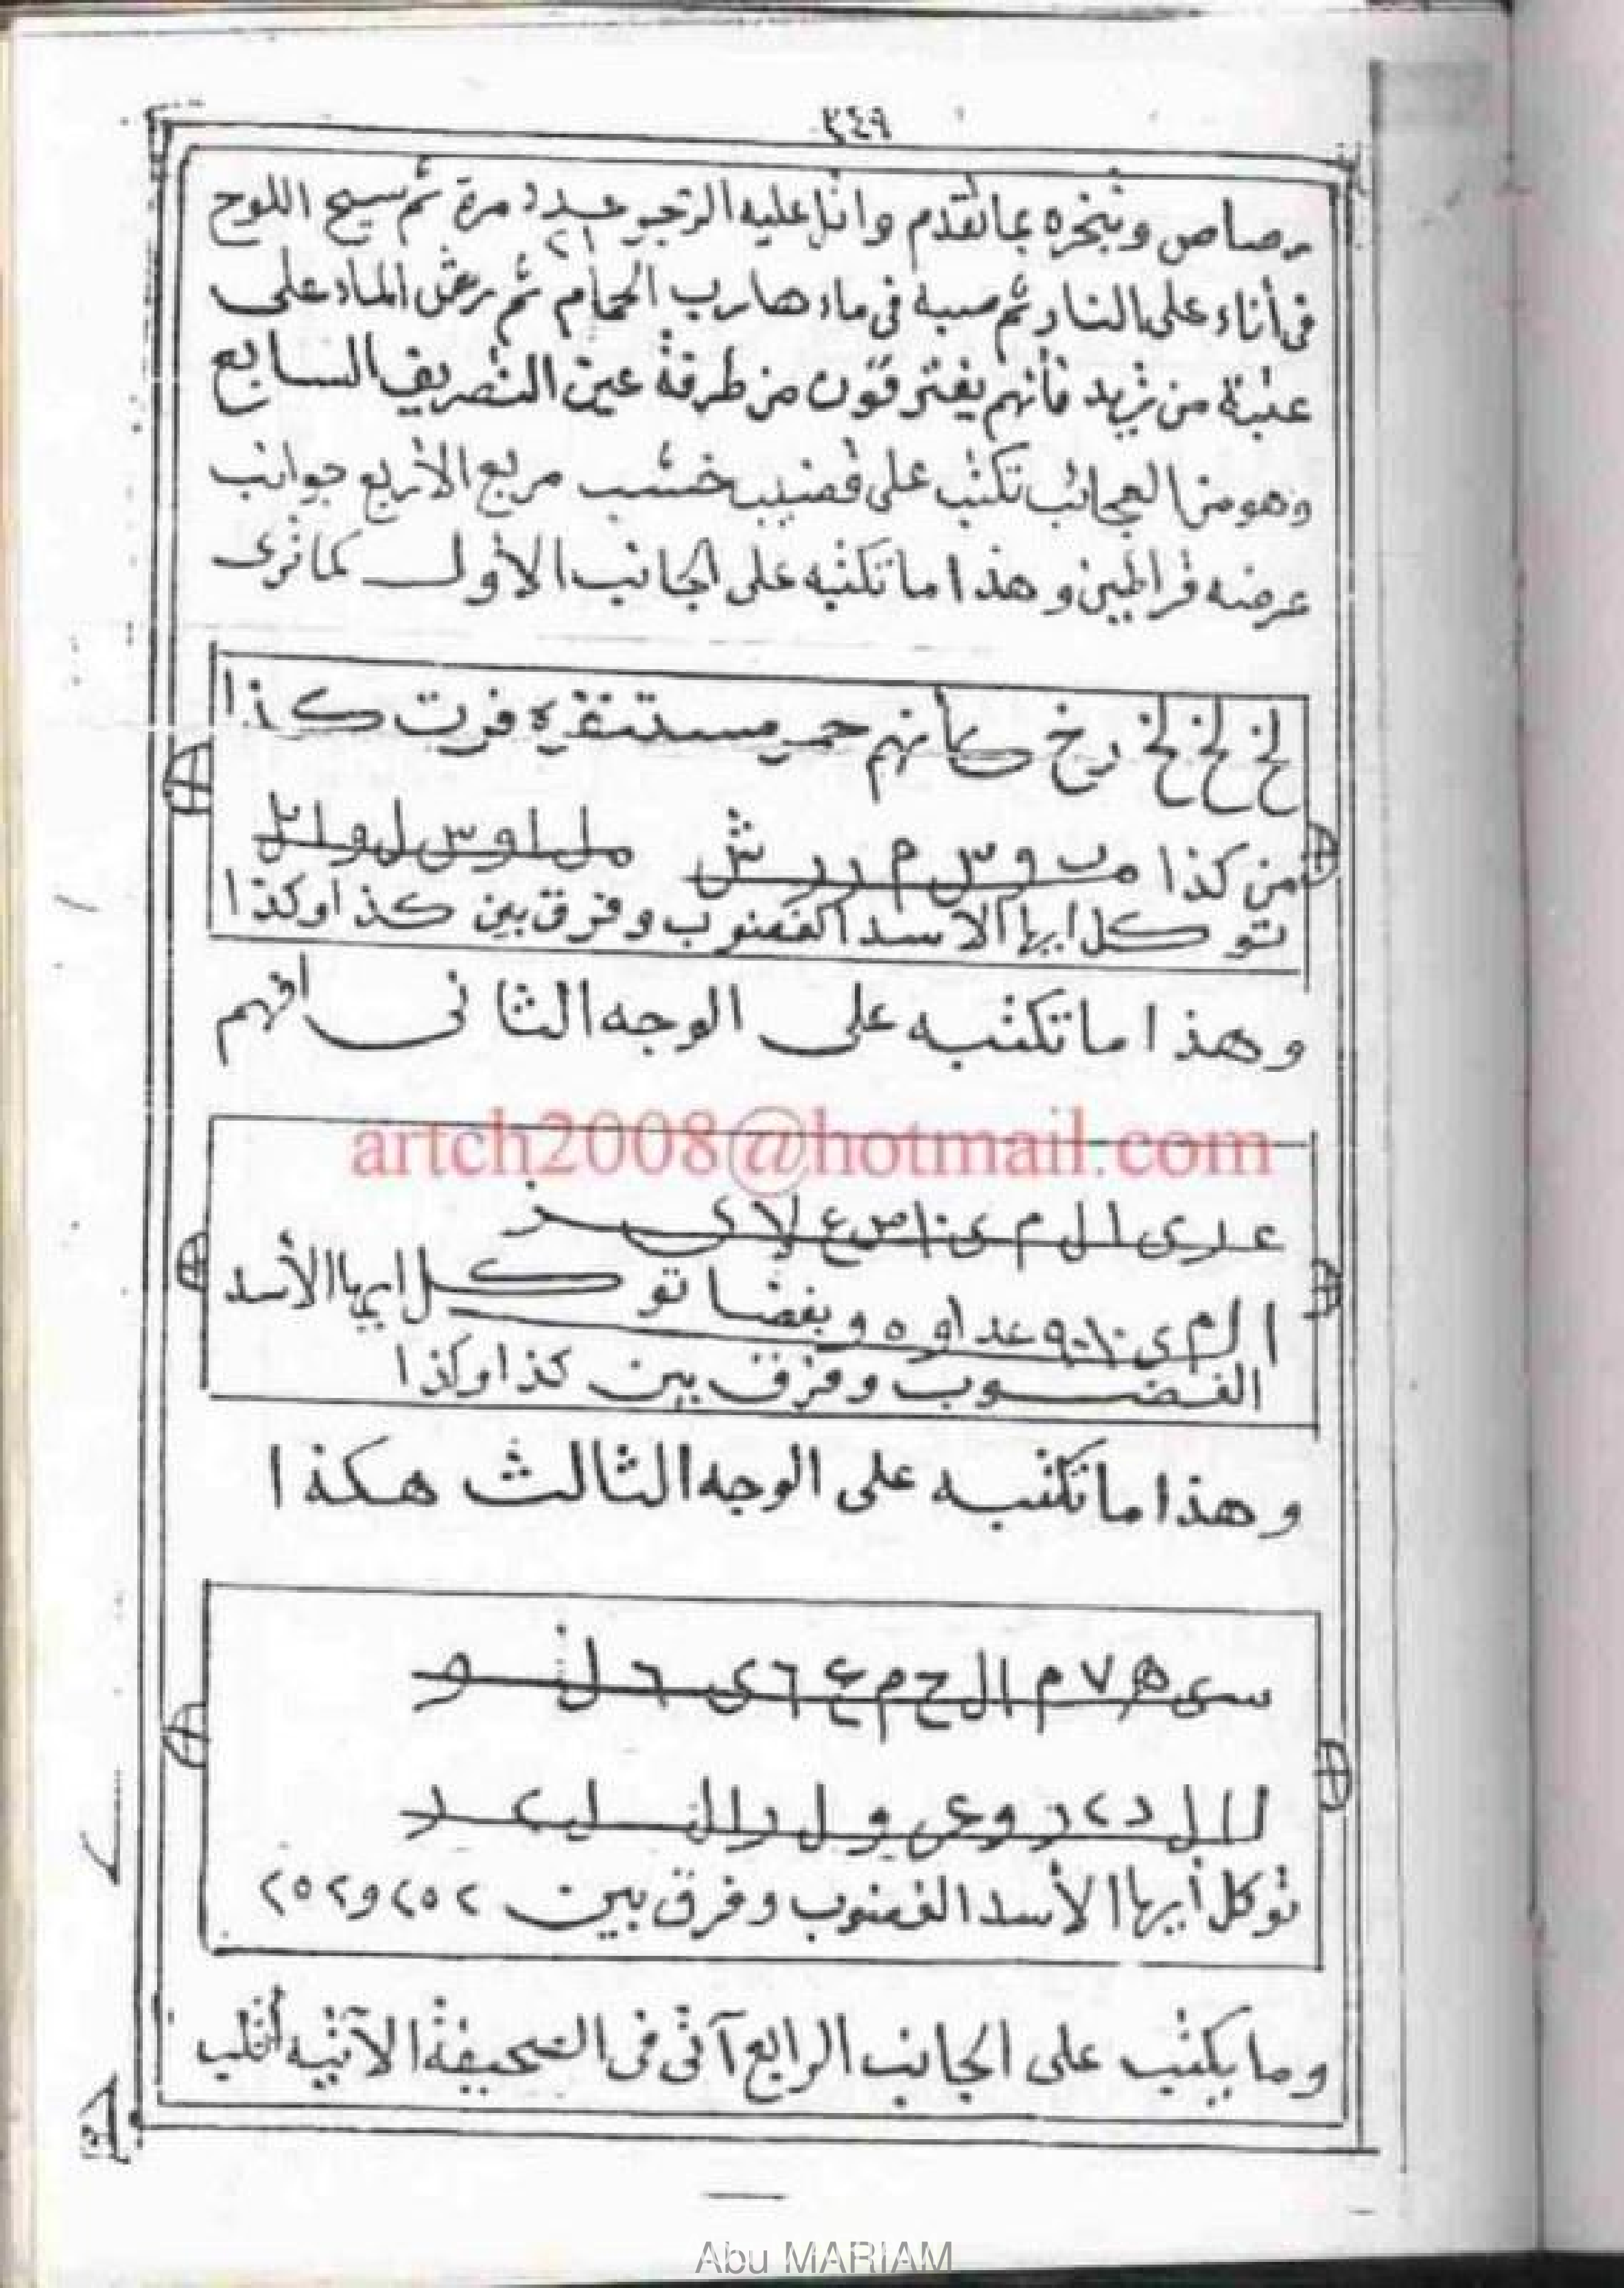 ٣٤٩
رصاص وتبخره بما تقدم واتل عليه الزجر عدد ٢١ مرة ثم سيح اللوح
فى أناء على النار ثم صبه فى ماء هارب الحمام ثم رش الماء على
عتبة من تريد فأنهم يفترقون من طرفة عين التصريف السابع
وهو من العجائب تكتب على قضيب خشب مربع الأربع جوانب
عرضه قراطين وهذا ما تكتبه على الجانب الأول كما ترى
لخ لخ لخ رخ كأنهم حمر مستنفره فرت كذا
من كذا م ب و س م ر ر ش م ل ا و س ل و ا
توكل ايها الاسد الغضوب وفرق بين كذا وكذا
وهذا ما تكتبه على الوجه الثانى افهم
artch2008@hotmail.com
ا ل م ى عداوه وبغضا توكل ايها الأسد
الغضوب وفرق بين كذا وكذا
وهذا ما تكتبه على الوجه الثالث هكذا
سى ه ٧ م ا ل ح م ع ٦ ى ٦ ل ن و
توكل أيها الأسد الغضوب وفرق بين ٢٥٢ و ٢٥٢
وما يكتب على الجانب الرابع آتى فى الصحيفة الآتيه أقلب
Abu MARIAM